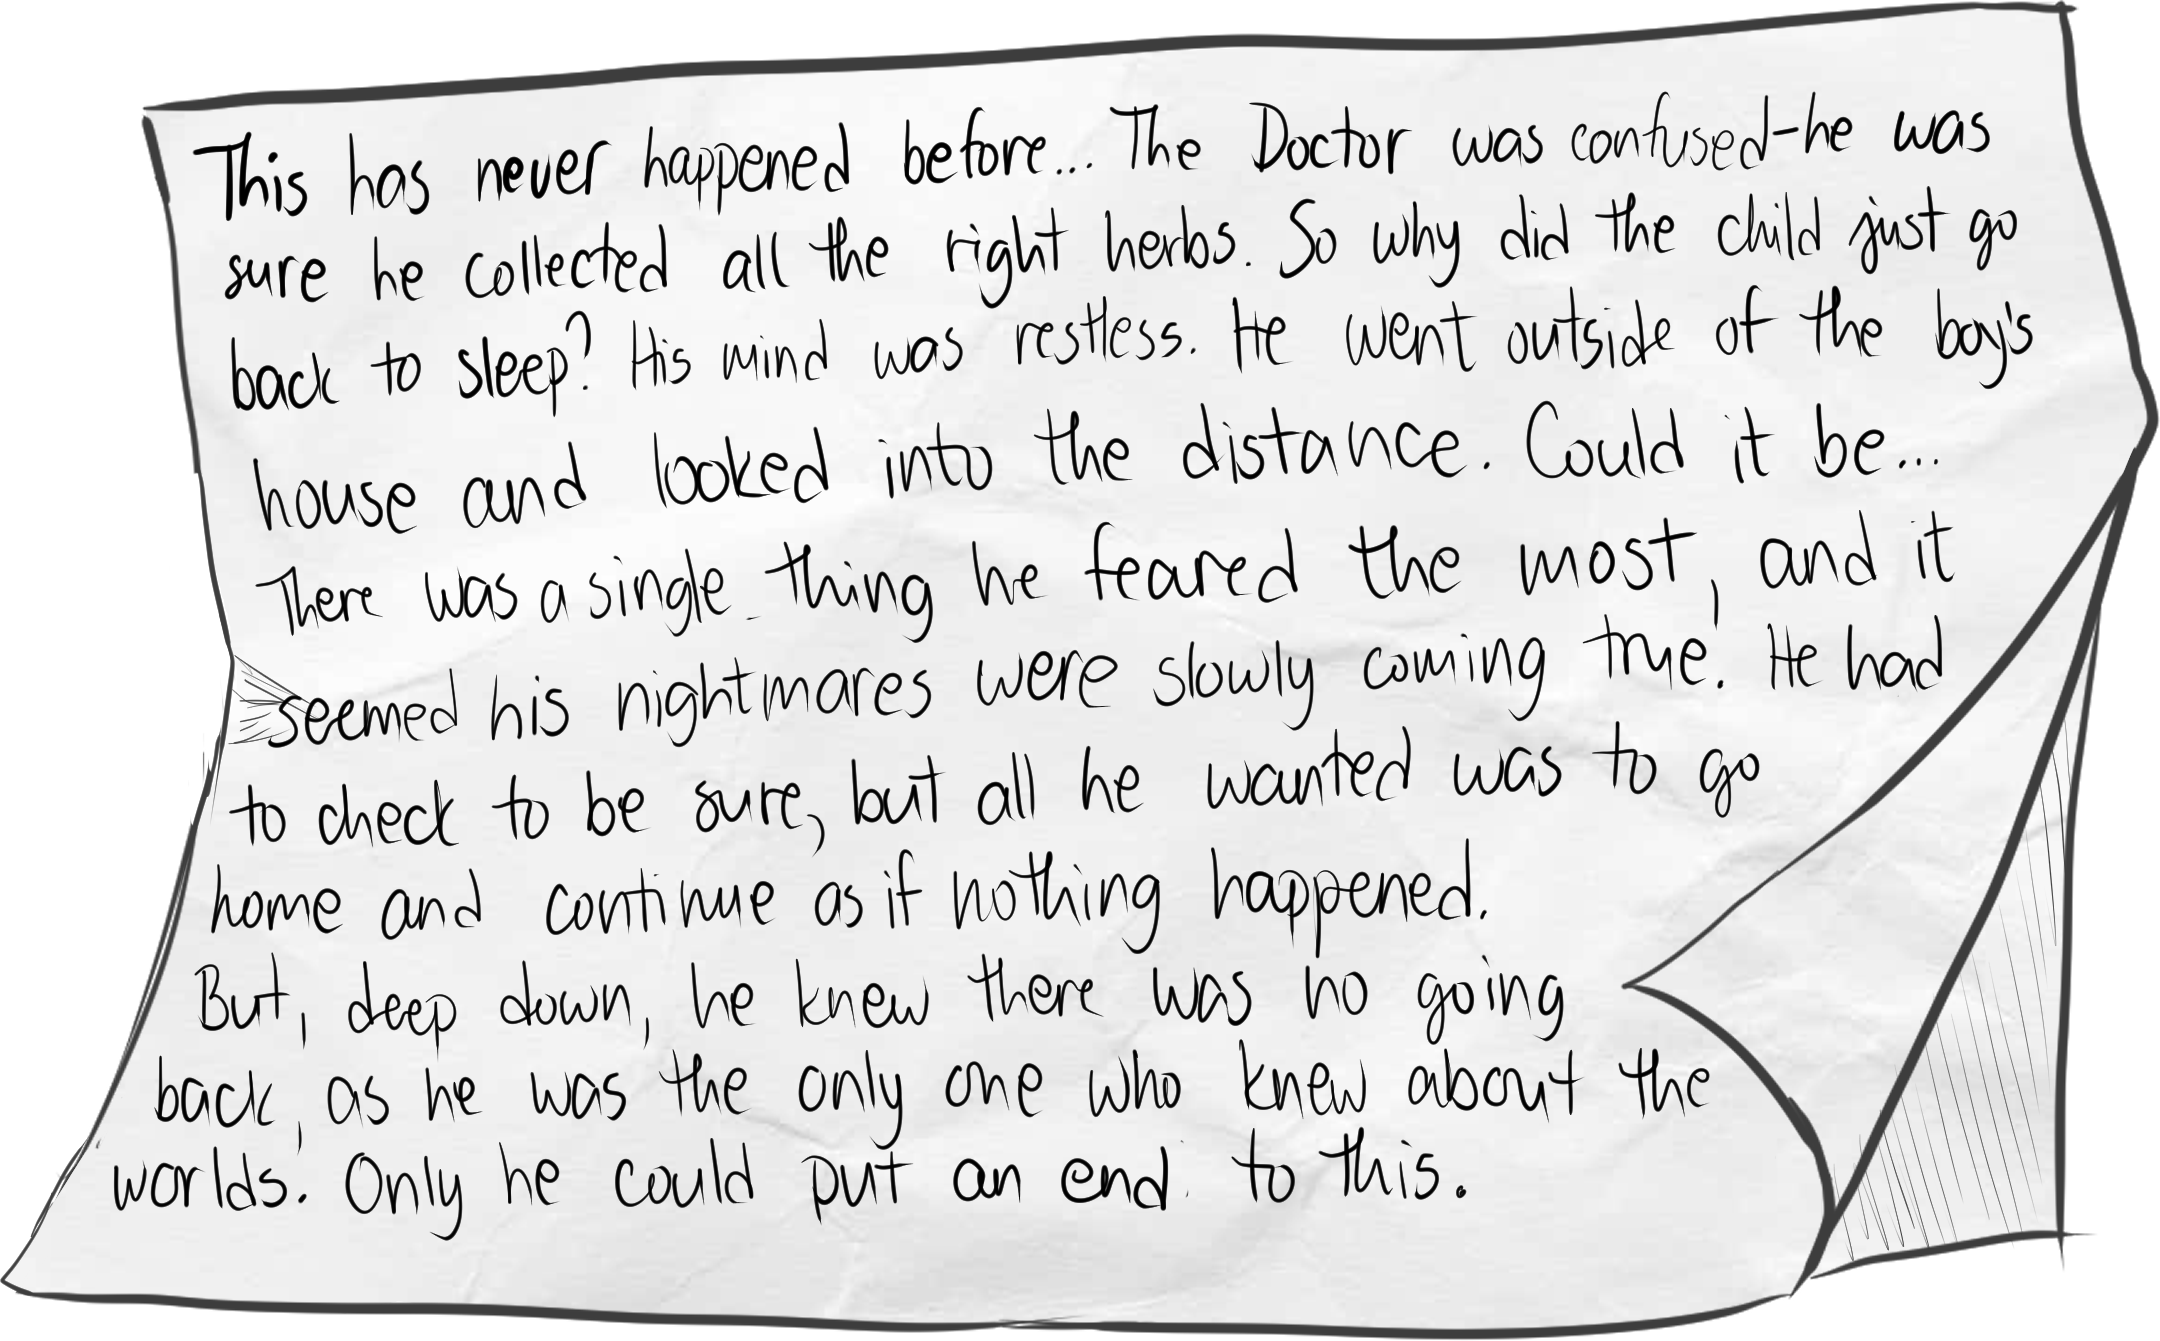 This has never happened before... The Doctor was confused-he was
sure he collected all the right herbs. So why did the child just go
back to sleep? His mind was restless. He went outside of the boy's
house and looked into the distance. Could it be...
There was a single thing he feared the most, and it
seemed his nightmares were slowly coming true. He had
to check to be sure, but all he wanted was to go
home and continue as if nothing happened.
But, deep down, he knew there was no going
back, as he was the only one who knew about the
worlds. Only he could put an end to this.